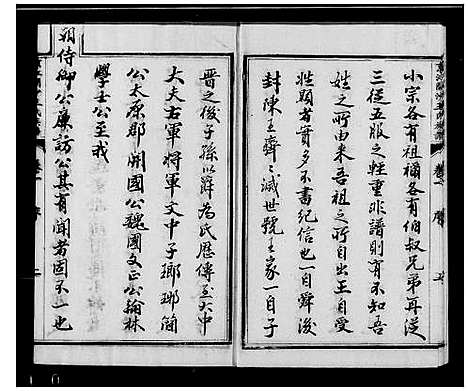 小宗各有祖禰各有伯叔兄弟再從
三從五服之輕重非譜則有不知吾
姓之所由来吾祖之所自出王自受
姓顯者實多不書紀信也一自舜後
封陳王齊之滅世號王家一自子
晋之後子孫以爵為氏歴傳至大中
大夫右軍將軍文中子瑯琊簡
公太原郡開國公魏國文正公翰林
學士公至我
朝侍御公廉訪公其有聞者固不一也